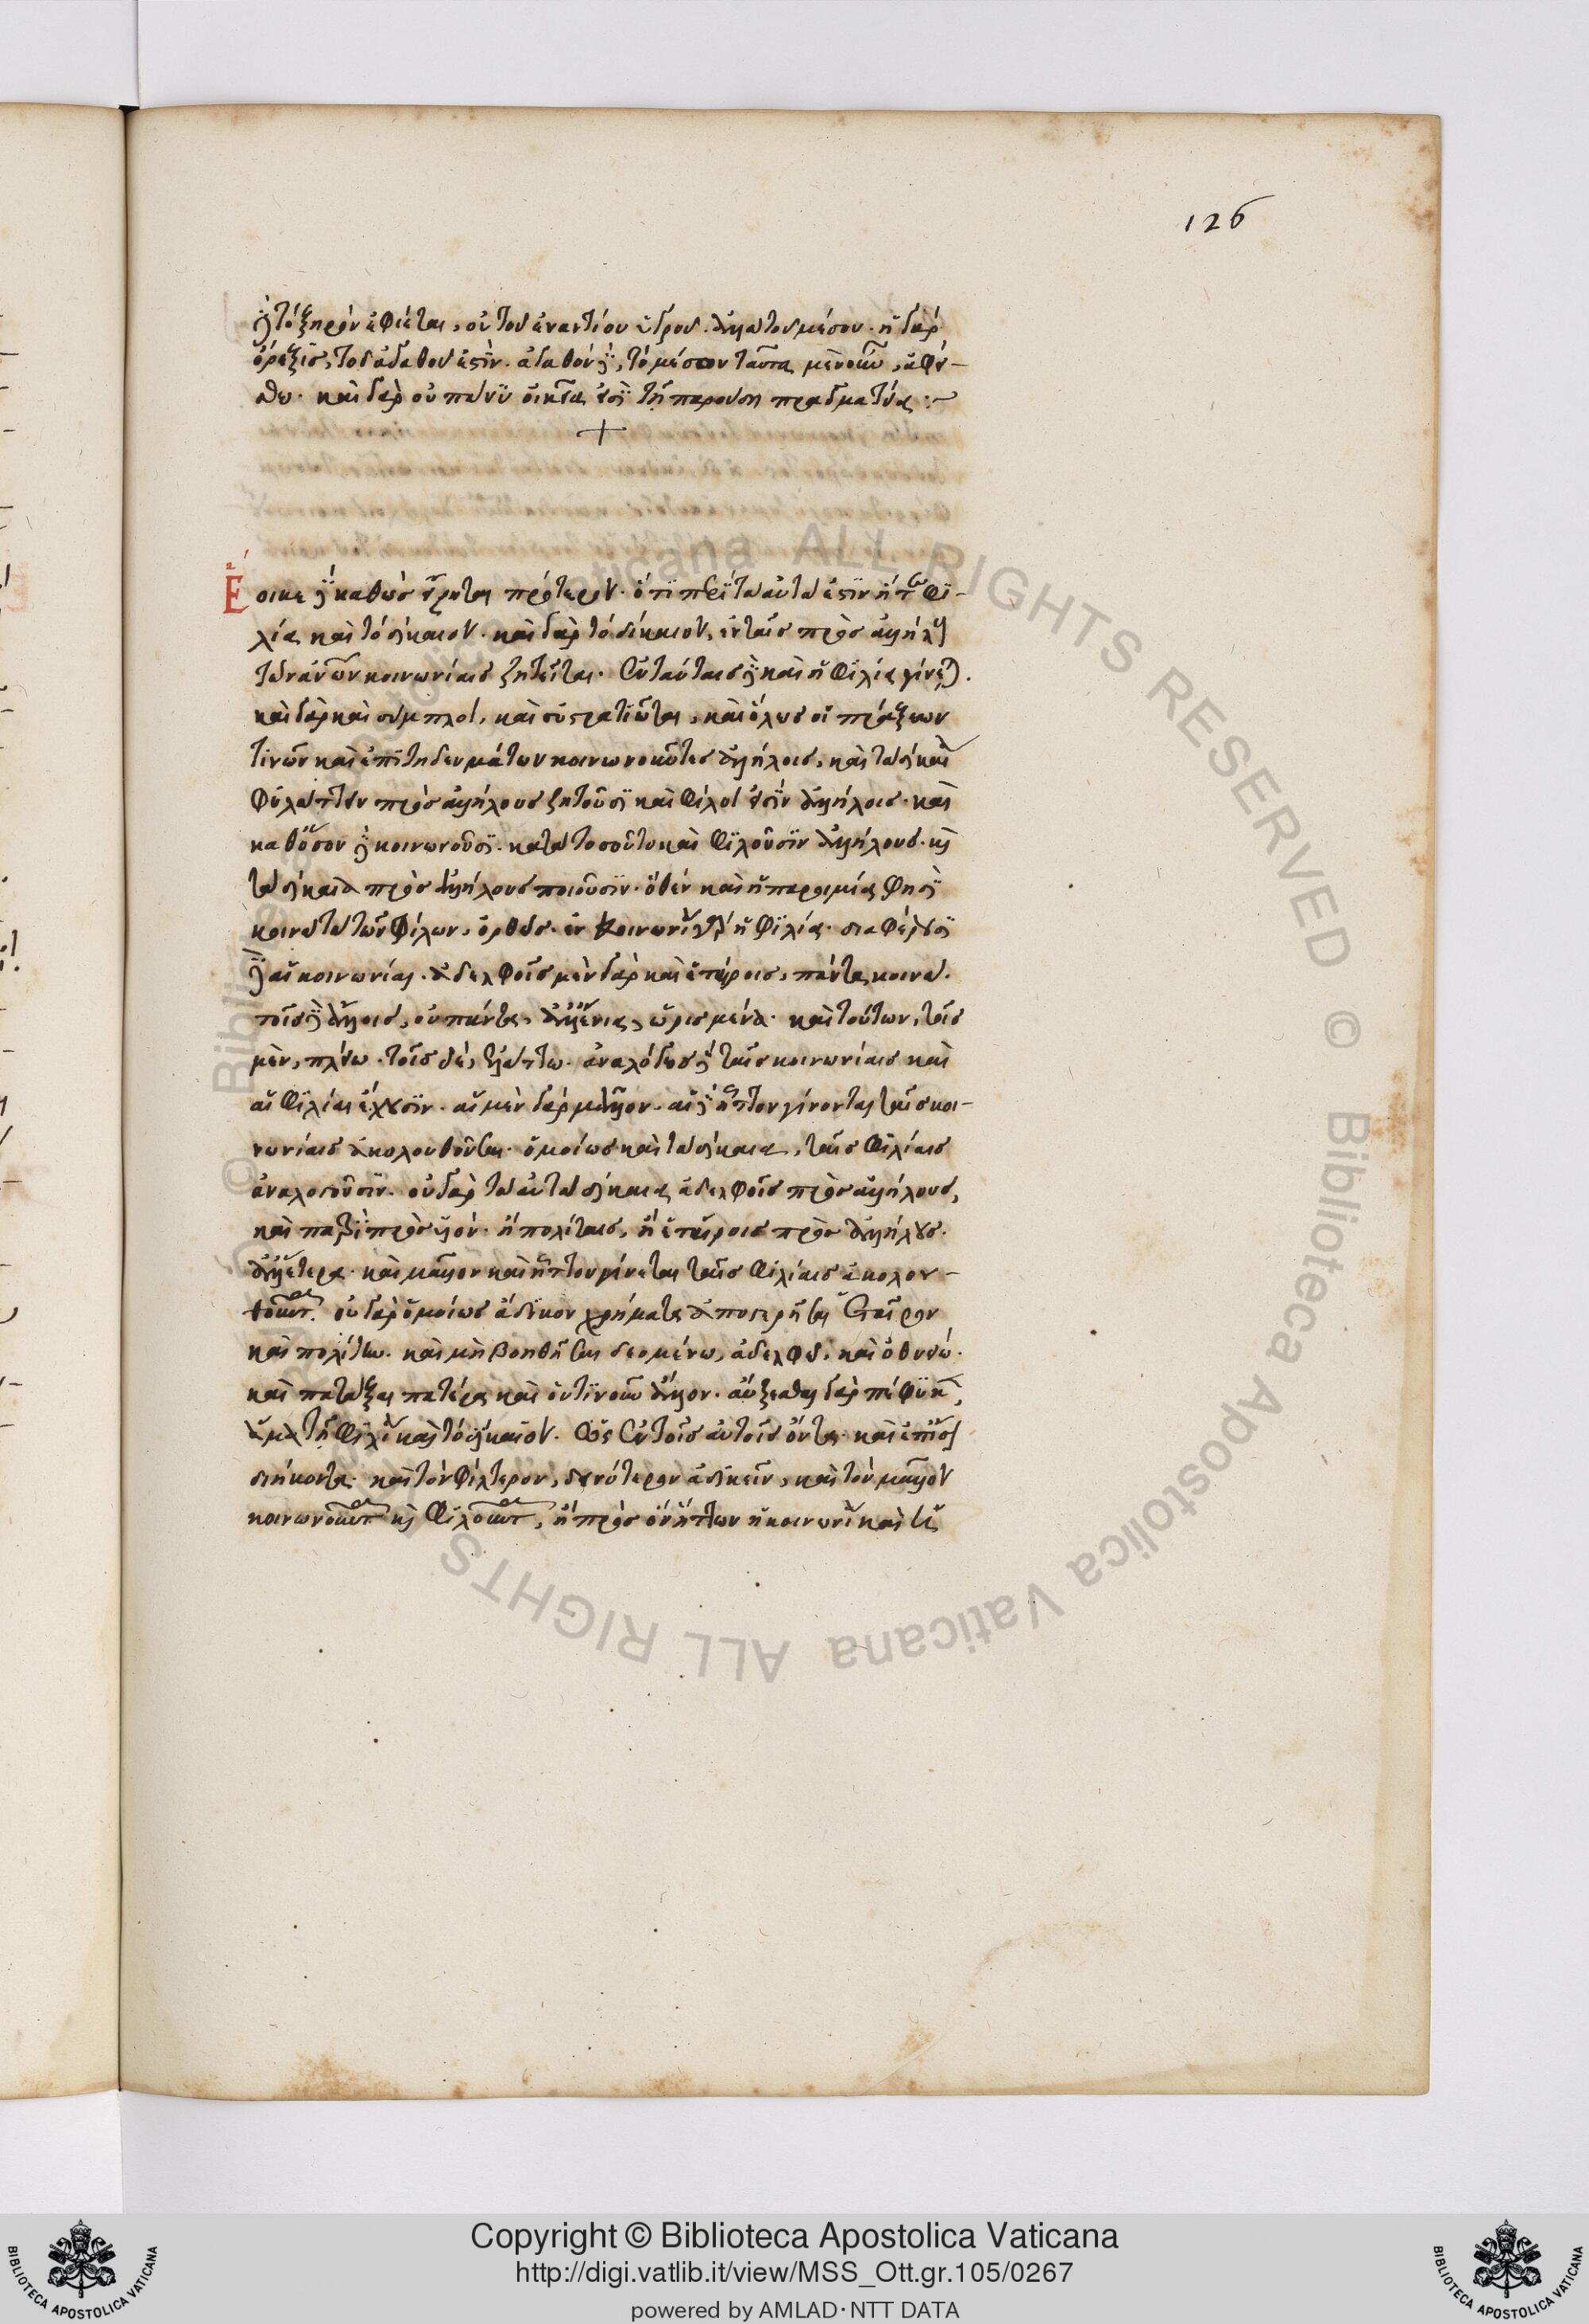 126
δὲ τὸ ξηρὸν ἐφίεται, οὐ τοῦ ἐναντίου ὑγροῦ. ἀλλὰ τοῦ μέσου. ἡ γὰρ
ὄρεξις, τοῦ ἀγαθοῦ ἐστίν. ἀγαθὸν δὲ, τὸ μέσον ταῦτα μὲν οὖν, ἀφεί-
σθω. καὶ γὰρ οὐ πάνυ οἰκεῖα εἰσὶ τῇ παρούσῃ πραγματείᾳ :~
+
Ἔοικε δὲ καθὼς εἴρηται πρότερον. ὅτι περὶ τὰ αὐτὰ ἐστὶν ἥτε φι-
λία καὶ τὸ δίκαιον. καὶ γὰρ τὸ δίκαιον, ἐν ταῖς πρὸς ἀλλήλους
τῶν ἀνθρώπων κοινωνίαις ζητεῖται. ἐν ταύταις δὲ καὶ ἡ φιλία γίνεται.
καὶ γὰρ καὶ σύμπλοι, καὶ συστρατιῶται, καὶ ὅλως οἱ πράξεων
τινῶν καὶ ἐπιτηδευμάτων κοινωνοῦντες ἀλλήλοις, καὶ τὰ δίκαια
φυλάττειν πρὸς ἀλλήλους ζητοῦσι καὶ φίλοι εἰσὶν ἀλλήλοις. καὶ
καθόσον δὲ κοινωνοῦσι. κατὰ τοσοῦτο καὶ φιλοῦσιν ἀλλήλους. καὶ
τὰ δίκαια πρὸς ἀλλήλους ποιοῦσιν. ὅθεν καὶ ἡ παροιμία φησὶ
κοινὰ τὰ τῶν φίλων, ὀρθῶς. ἐν κοινωνίᾳ γὰρ ἡ φιλία. διαφέρουσι
δὲ αἱ κοινωνίαι. ἀδελφοῖς μὲν γὰρ καὶ ἑταίροις, πάντα κοινά.
τοῖς δὲ ἄλλοις, οὐ πάντα, ἀλλ' ἔνια, ὡρισμένα. καὶ τούτων, τοῖς
μὲν, πλείω. τοῖς δὲ, ἐλάττω. ἀναλόγως δὲ ταῖς κοινωνίαις καὶ
αἱ φιλίαι ἔχουσιν. αἱ μὲν γὰρ μᾶλλον. αἱ δὲ ἧττον γίνονται ταῖς κοι-
νωνίαις ἀκολουθοῦσαι. ὁμοίως καὶ τὰ δίκαια, ταῖς φιλίαις
ἀναλογοῦσιν. οὐ γὰρ τὰ αὐτὰ δίκαια ἀδελφοῖς πρὸς ἀλλήλους,
καὶ πατρὶ πρὸς υἱόν. ἢ πολίταις, ἢ ἑταίροις πρὸς ἀλλήλους.
ἀλλ' ἕτερα. καὶ μᾶλλον καὶ ἧττον γίνεται ταῖς φιλίαις ἀκολου-
θοῦντα. οὐ γὰρ ὁμοίως ἄδικον χρήματα ἀποστερῆσαι ἑταῖρον
καὶ πολίτην. καὶ μὴ βοηθῆσαι δεομένῳ, ἀδελφῷ, καὶ ὀθνείῳ.
καὶ πατάξαι πατέρα καὶ ὁντινοῦν ἄλλον. αὔξεσθαι γὰρ πέφυκεν,
ἅμα τῇ φιλίᾳ καὶ τὸ δίκαιον. ὡς ἐν τοῖς αὐτοῖς ὄντα. καὶ ἐπίσης
διήκοντα. καὶ τὸν φίλτερον, δεινότερον ἀδικεῖν, καὶ τὸν μᾶλλον
κοινωνοῦντα καὶ φιλοῦντα, ἢ πρὸς ὃν ἧττων ἡ κοινωνία καὶ
Copyright © Biblioteca Apostolica Vaticana
http://digi.vatlib.it/view/MSS_Ott.gr.105/0267
powered by AMLAD·NTT DATA